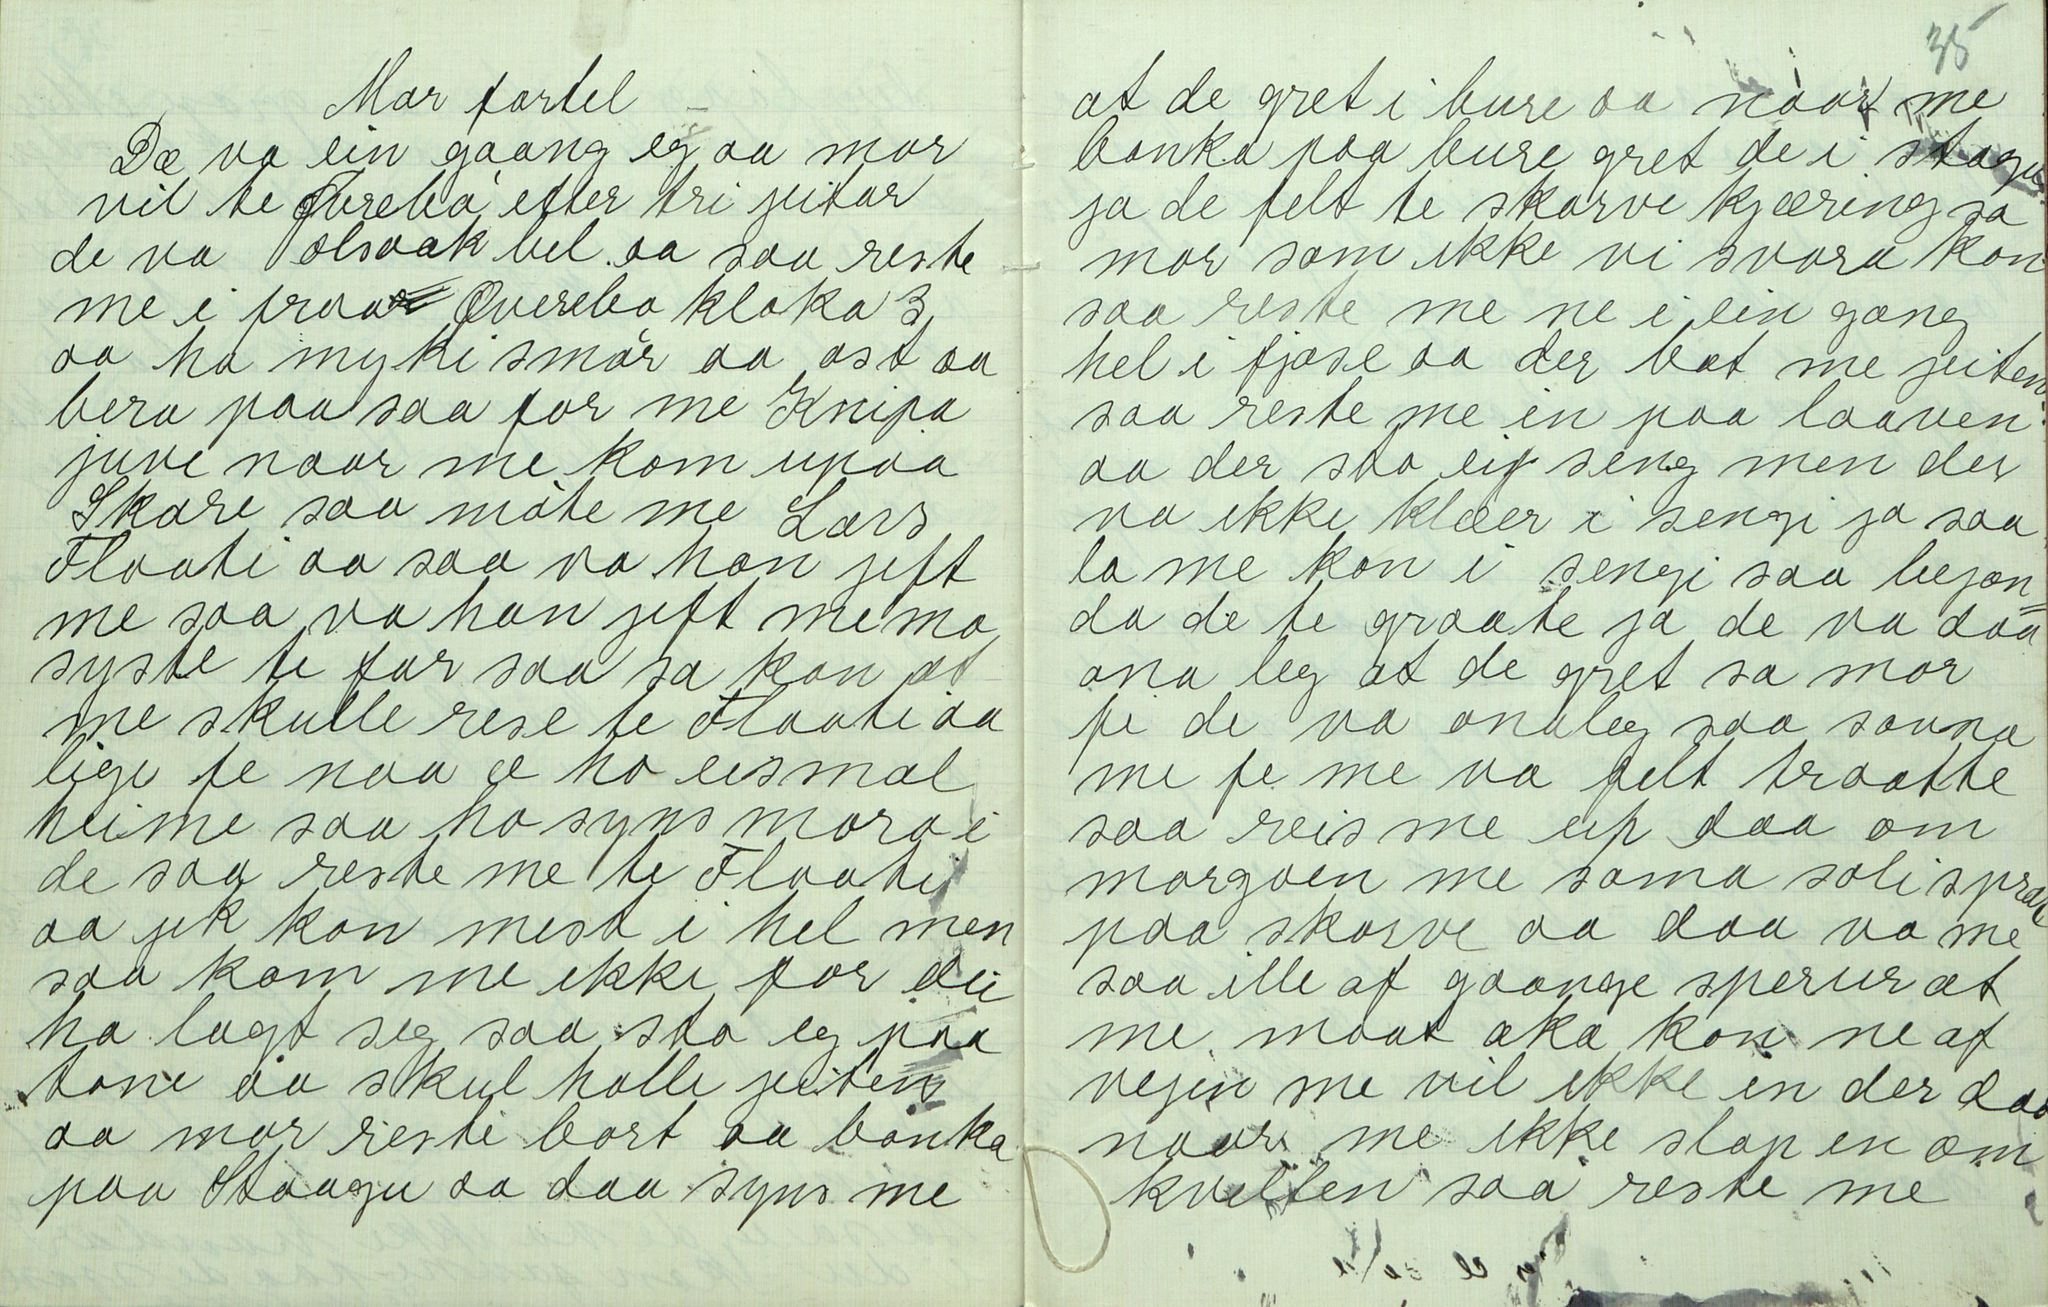 Mor fortel
De va ein gaang eg aa mor
vil te Øverebø efter tri jeitar
de va olsaak vel aa saa reste
me i fraa Øverebø kloka 3
aa ha myki smör aa ost aa
bera paa saa for me Knipa
juve naar me kom upaa
Skare saa möte me Lars
Flaati aa saa va han jift
me saa va han jift me mo
syste te far saa sa kan at
me skulle rese te Flaati aa
ligi fe naa æ ho eismal
heime saa ho syns moro i
de saa reste me te Flaati
aa jik kan mest i hel men
saa kom me ikki for dei
ha lagt seg saa sto eg paa
tone aa skul halle jeiten
aa mor resti bort aa banka
paa Staagu aa daa syns me
35
at de gret i bure aa naar me
banka paa bure gret de i stagu
ja de felt te skarve kjæring sa
mor som ikke vi svara kon
saa reste me ne i ein gang
hel i fjose aa der bat me jeiten
saa reste me in paa laaven
aa der saa ein seng men der
va ikki klæer i sengi ja saa
la me kon i sengi saa begon=
da de te graate ja de va daa
ona leg at de gret sa mor
fe de va onaleg saa sovna
me fe me va felt traatte
saa reis me up daa om
morgoen me soma soli sprak
paa skarve aa daa va me
saa ille af gaange sperur at
me maat aka kon ne af
vejen me vil ikke in der daa
naar me ikke slap in om
kvellen saa reste me